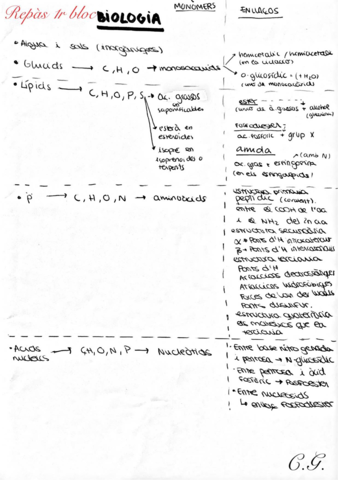 Repàs 1r bloc BIOLOGIA
MONÒMERS
ENLLAÇOS
• Aigua i sals (inorgàniques)
• Glúcids → C, H, O → monosacàrids
hemicetàlic / hemiacetàlic
O-glucosídic = (+H2O)
(unió de monosacàrids)
• Lípids → C, H, O, P, S
àc. grassos
saponificables
esterà en
esteroides
isoprè en
isoprenoides o
terpens
ESTER
(unió de à grassos + alcohol
àc fosfòric + grup X
amida (amb N)
àc. gras + esfingosina
(en els esfingolípids)
• P → C, H, O, N → aminoàcids
estructura primària
peptídic (covalent).
entre el COOH de l'aa
i el NH2 del in aa
estructura secundària
α = Ponts d'H intracatenar
β = Ponts d'H
estructura terciària
Ponts d'H
Atraccions electrostàtiques
Atraccions hidrofòbiques
Forces de Van der Waals
Ponts disulfur.
estructura quaternària
els mateixos que la
terciària
• Àcids nucleics → C, H, O, N, P → Nucleòtids
• Entre base nitrogenada
i pentosa → N-glucosídic
• Entre pentosa i àcid
fosfòric → Fosfoèster
• Entre nucleòtids
↳ enllaç fosfodièster
C.G.